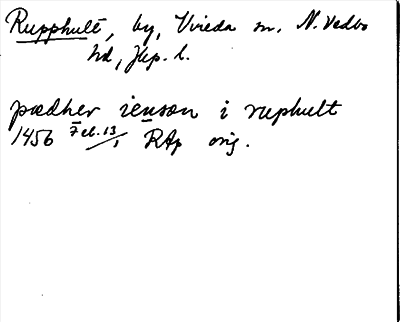 Rupphult, by, Vireda sn, N. Vedbo
hd, Jkp. l.
pædher ienson i ruphult
1456 Feb. 13/1 RAp orig.